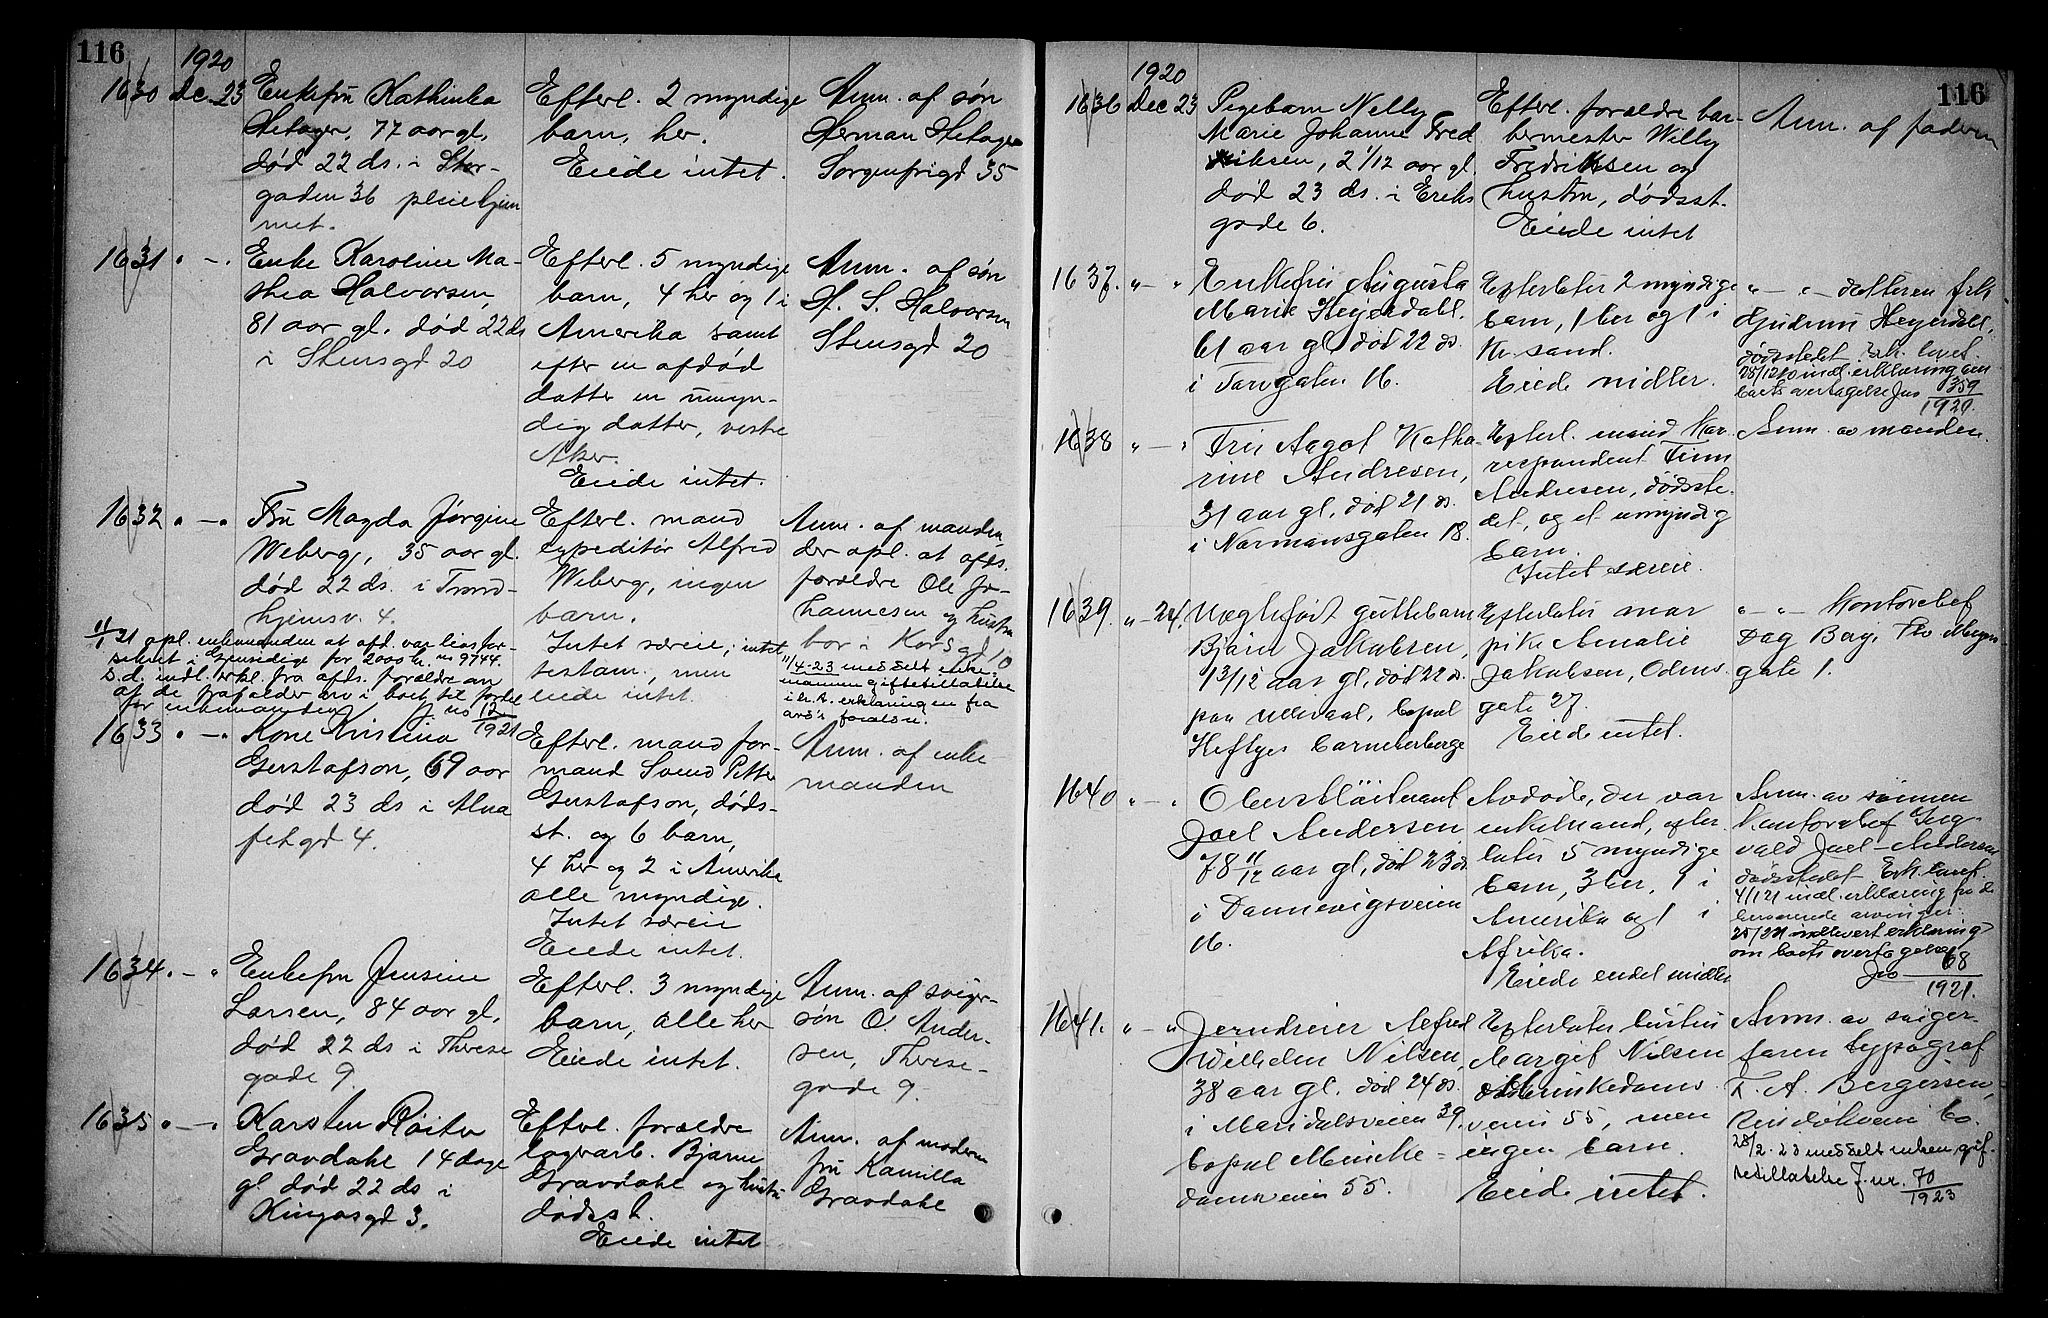 116
1920
1630 Dec 23 Enkefru Kathinka
Hetager, 77 aar gl.
død 22 ds. i Stor-
gaden 36 pleiehjem
met.
Efterl. 2 myndige
barn, her.
Eiede intet.
Anm. af søn
Herman Hetager
Sorgenfrigd 35
1631 " — " Enke Karoline Ma-
thea Halvorsen,
81 aar gl. død 22 ds
i Stensgd 20
Efterl. 5 myndige
barn, 4 her og 1 i
Amerika samt
efter en afdød
datter en umyn-
dig datter, vestre
Aker.
Eiede intet.
Anm. af søn
H. S. Halvorsen
Stensgd 20
1632 " — " Fru Magda Jørgine
Weberg, 35 aar gl.
død 22 ds. i Trond-
hjemsv. 4.
11/1 21 opl. enkemanden at afd. var livsfor-
sikret i Gjensidige for 2000 kr. no 9744.
S.d. indl. erkl. fra afds. forældre om
at de frafalder arv i boet til fordel
for enkemanden J. no 12/1921
Efterl. mand
expeditør Alfred
Weberg, ingen
barn.
Intet særeie, intet
testam., men
eiede intet.
Anm. af manden,
der opl. at afds.
forældre Ole Jo-
hannesen og hustru
bor i Korsgd 10
11/4-23 meddelt enke-
manden giftetilladelse
i h. t. erklæringen fra
avd's foreldre.
1633 " — " Kone Kristina
Gustafson, 69 aar
død 23 ds i Alna
fetgd 4.
Efterl. mand for-
mand Svend Petter
Gustafson, døds-
st. og 6 barn,
4 her og 2 i Amerika
alle myndige.
Intet særeie
Eiede intet.
Anm. af enke-
manden
1634 " — " Enkefru Jensine
Larsen, 84 aar gl,
død 22 ds i Therese
gade 9.
Efterl. 3 myndige
barn, alle her
Eiede intet.
Anm. af sviger-
søn O. Ander-
sen, Therese-
gade 9.
1635 " — " Karsten Røiter
Gravdahl 14 dage
gl død 22 ds i
Kingosgd 3.
Efterl. forældre
lagerarb. Bjarne
Gravdahl og hustru
dødsst.
Eiede intet
Anm. af moderen
fru Kamilla
Gravdahl
116
1920
1636 Dec 23 Pigebarn Nelly
Marie Johanne Fred
riksen, 2 1/12 aar gl.
død 23 ds. i Eriks
gade 6.
Efterl. forældre bar-
bermester Willy
Fredriksen og
hustru, dødsst.
Eiede intet
Anm. af faderen
1637. " — " Enkefru Augusta
Marie Heyerdahl.
61 aar gl, død 22 ds.
i Torvgaten 16.
Efterlater 2 myndige
barn, 1 her og 1 i
Kr.sand.
Eiede midler.
" — " — datteren frk
Gudrun Heyerdahl,
dødsstedet. Erk. lovet.
28/12 20 indl. erklæring om
boets overtagelse Jno 359/1920.
1638 " — " Fru Aagot Katha
rine Andresen,
31 aar gl, død 21 ds.
i Normansgaten 18.
Efterl. mand Kor-
respondent Finn
Andresen, dødsste-
det, og et umyndig
barn.
Intet særeie.
Anm. av manden.
1639. " — 24. Uegtefødt guttebarn
Bjarn Jakobsen,
1 3/12 aar gl, død 22 ds.
paa Ullevaal, bopæl
Heftyes barneherberge
Efterlater mor
pike Amalie
Jakobsen, Odins
gate 27.
Eiede intet.
" — " — Kontorchef
Dag Berg, Tho Meyers
gate 1.
1640 " — " Oberstløitnant
Joel Andersen
78 11/12 aar gl, død 23 ds
i Dannevigsveien
16.
Avdøde, der var
enkemand, efter-
later 5 myndige
barn, 3 her, 1 i
Amerika og 1 i
Afrika.
Eiede endel midler
Anm. av sønnen
Kontorchef Ing-
vald Joel-Andersen
dødsstedet. Erk. lovet.
4/1 21 indl. erklæring fra de
herværende arvinger.
25/2 21 indlevert erklæring
om boets overtagelse
Jno 68/1921.
1641. " — " Jerndreier Alfred
Wilhelm Nilsen,
38 aar gl. død 24 ds.
i Maridalsveien 39.
bopæl Munke-
damsveien 55.
Efterlater hustru
Margit Nilsen
Munkedams
veien 55, men
ingen barn.
Eiede intet.
Anm. av sviger-
faren typograf
F. A. Bergersen,
28/2. 23 meddelt enken gif-
tetilladelse J. nr. 70/1923